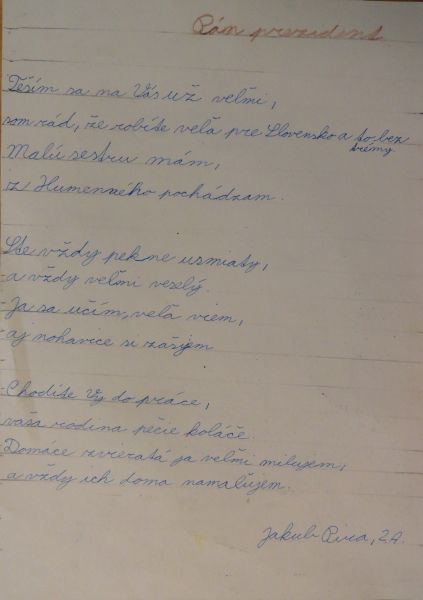 Pán prezident
Teším sa na Vás už veľmi,
som rád, že robíte veľa pre Slovensko a to bez
trémy.
Malú sestru mám,
iz Humenného pochádzam.
Ste vždy pekne usmiaty,
a vždy veľmi veselý.
Ja sa učím, veľa viem,
aj nohavice si zašijem
Chodíte Vy do práce,
vaša rodina pečie koláče.
Domáce zvieratá ja veľmi milujem,
a vždy ich doma namaľujem.
Jakub, 2.A.